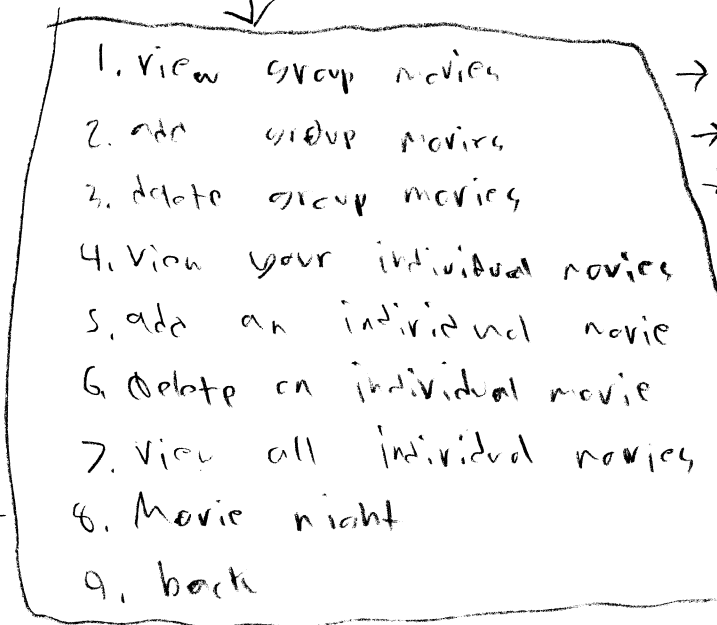 1. view group movies
2. add group movies
3. delete group movies
4. View your individual movies
5. add an individual movie
6. Delete an individual movie
7. View all individual movies
8. Movie night
9. back